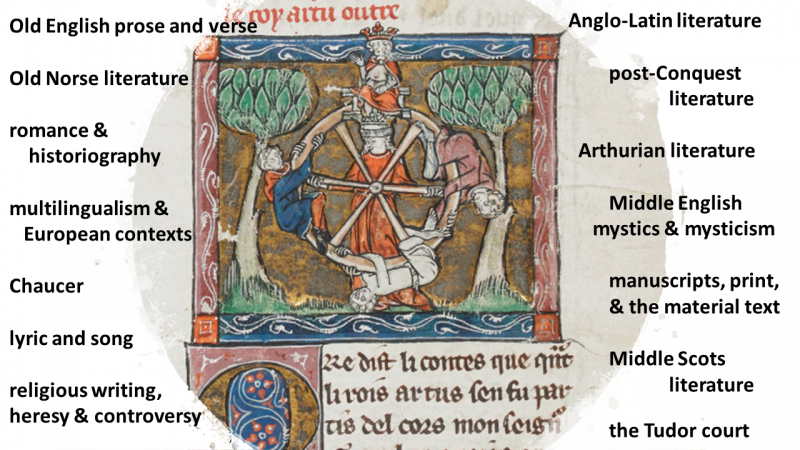 roy artu outre
Old English prose and verse
Old Norse literature
romance &
historiography
multilingualism &
European contexts
Chaucer
lyric and song
religious writing,
heresy & controversy
Anglo-Latin literature
post-Conquest
literature
Arthurian literature
Middle English
mystics & mysticism
manuscripts, print,
& the material text
Middle Scots
literature
the Tudor court
Re dist li contes que qñt
li rois artus sen fu par
tis del cors mon seign